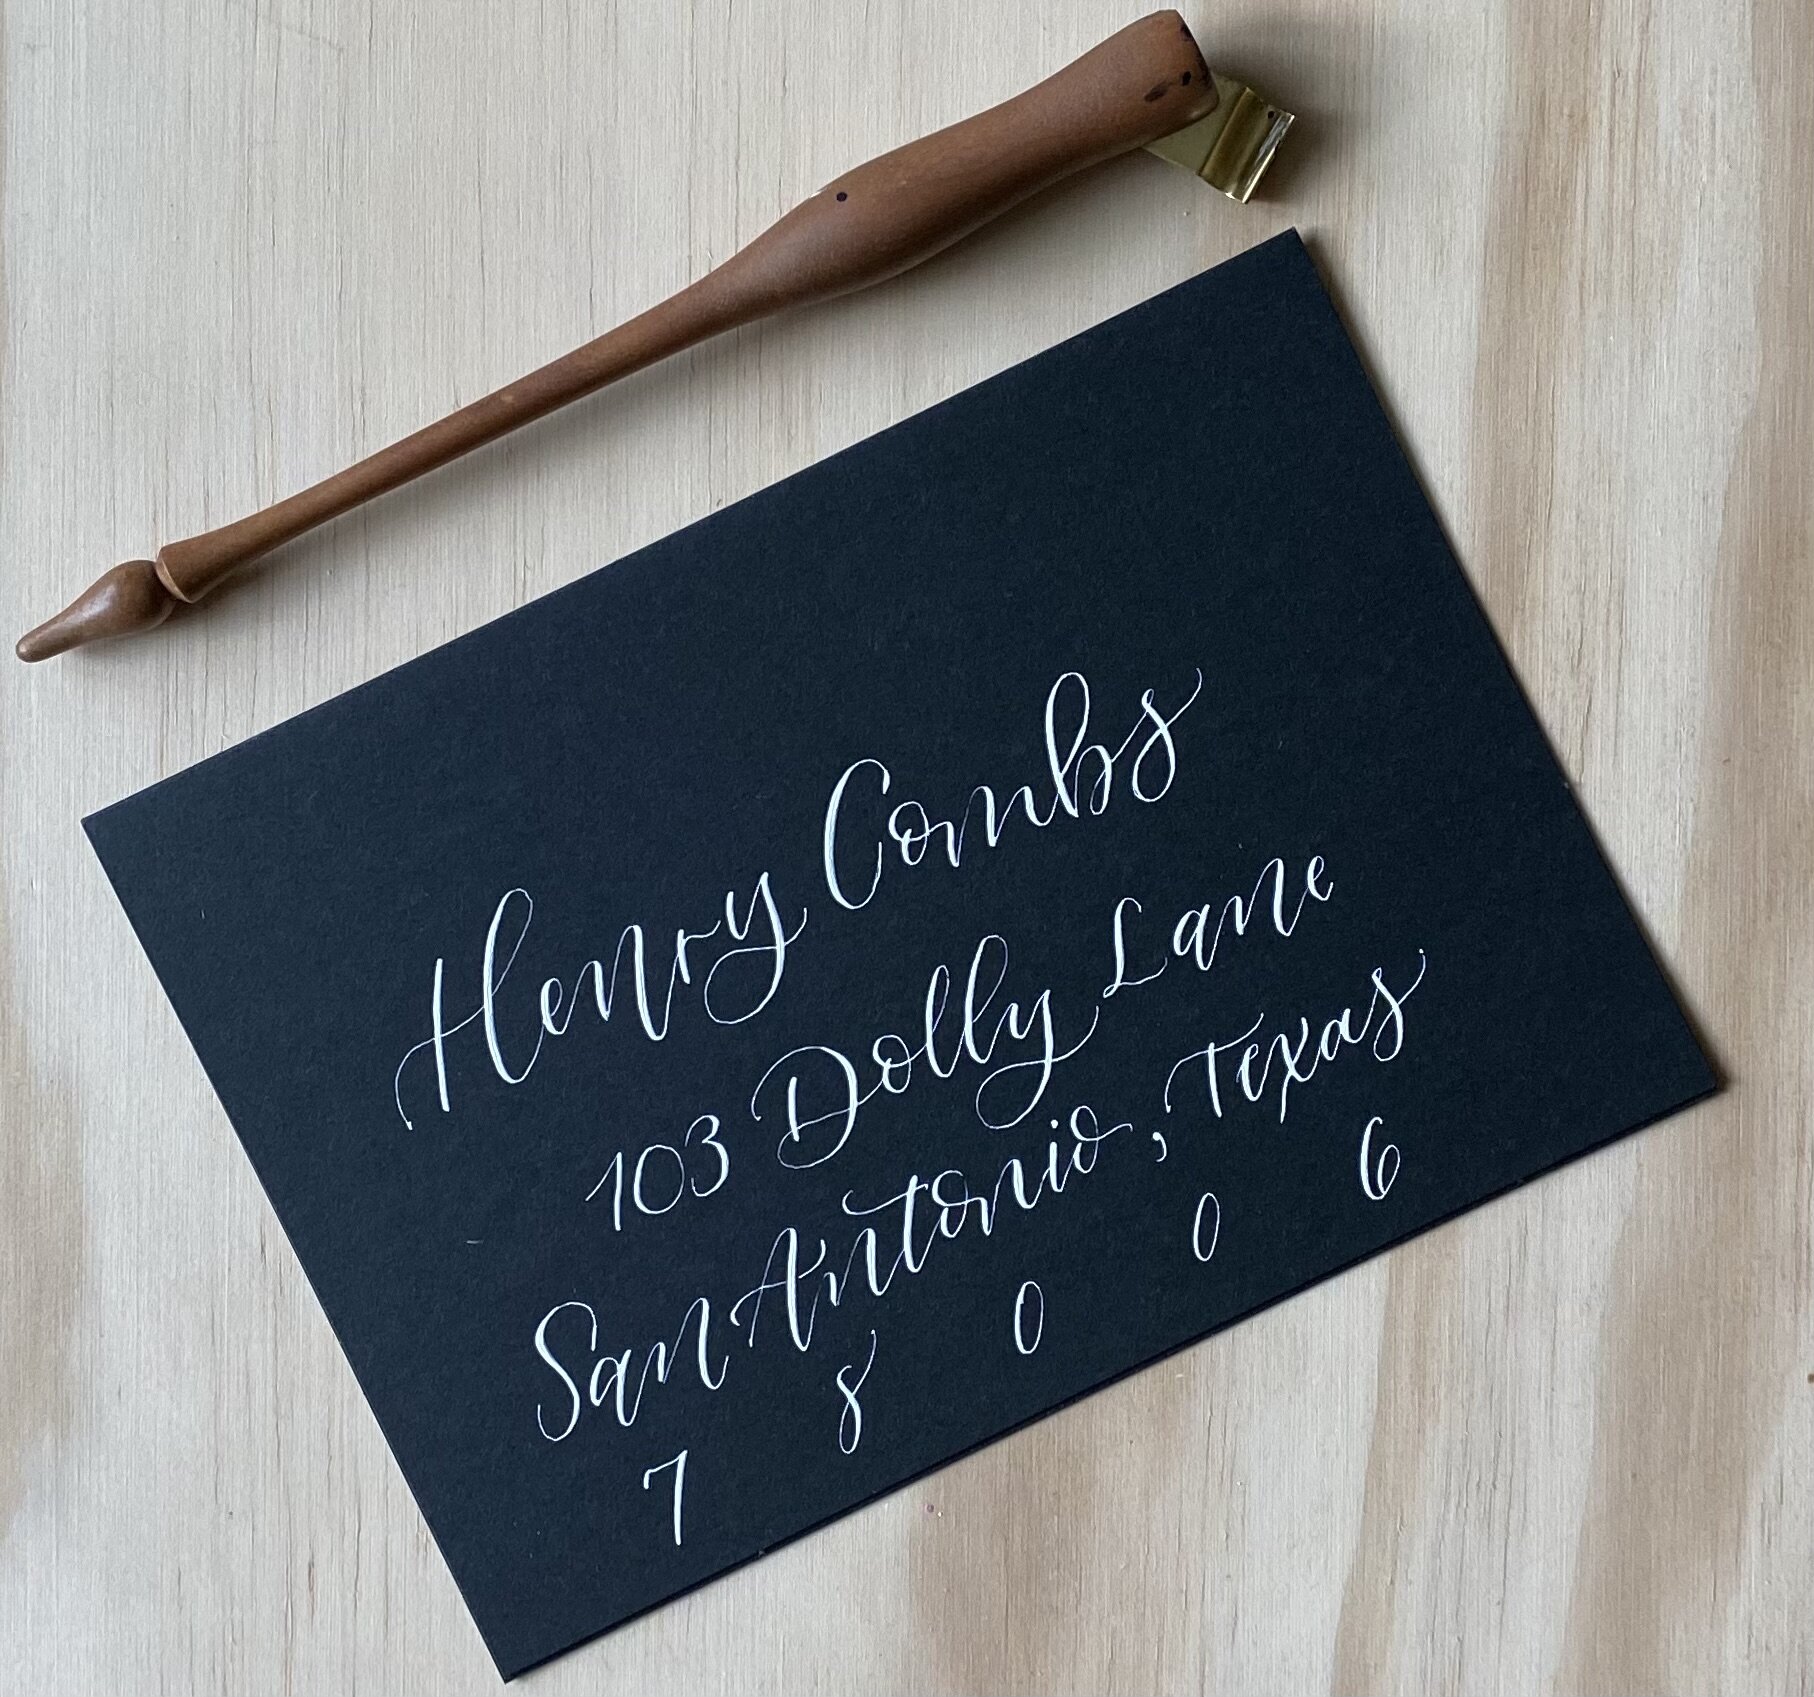 Henry Combs
103 Dolly Lane
San Antonio, Texas
78006